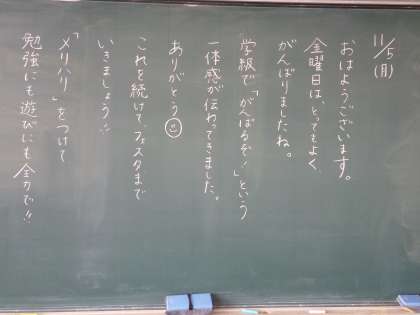 11/5（月）
おはようございます。
金曜日は、とってもよく
がんばりましたね。
学級で「がんばるぞ！」という
一体感が伝わってきました。
ありがとう
これを続けて、フェスタまで
いきましょう!!
「メリハリ」をつけて
勉強にも遊びにも全力で!!